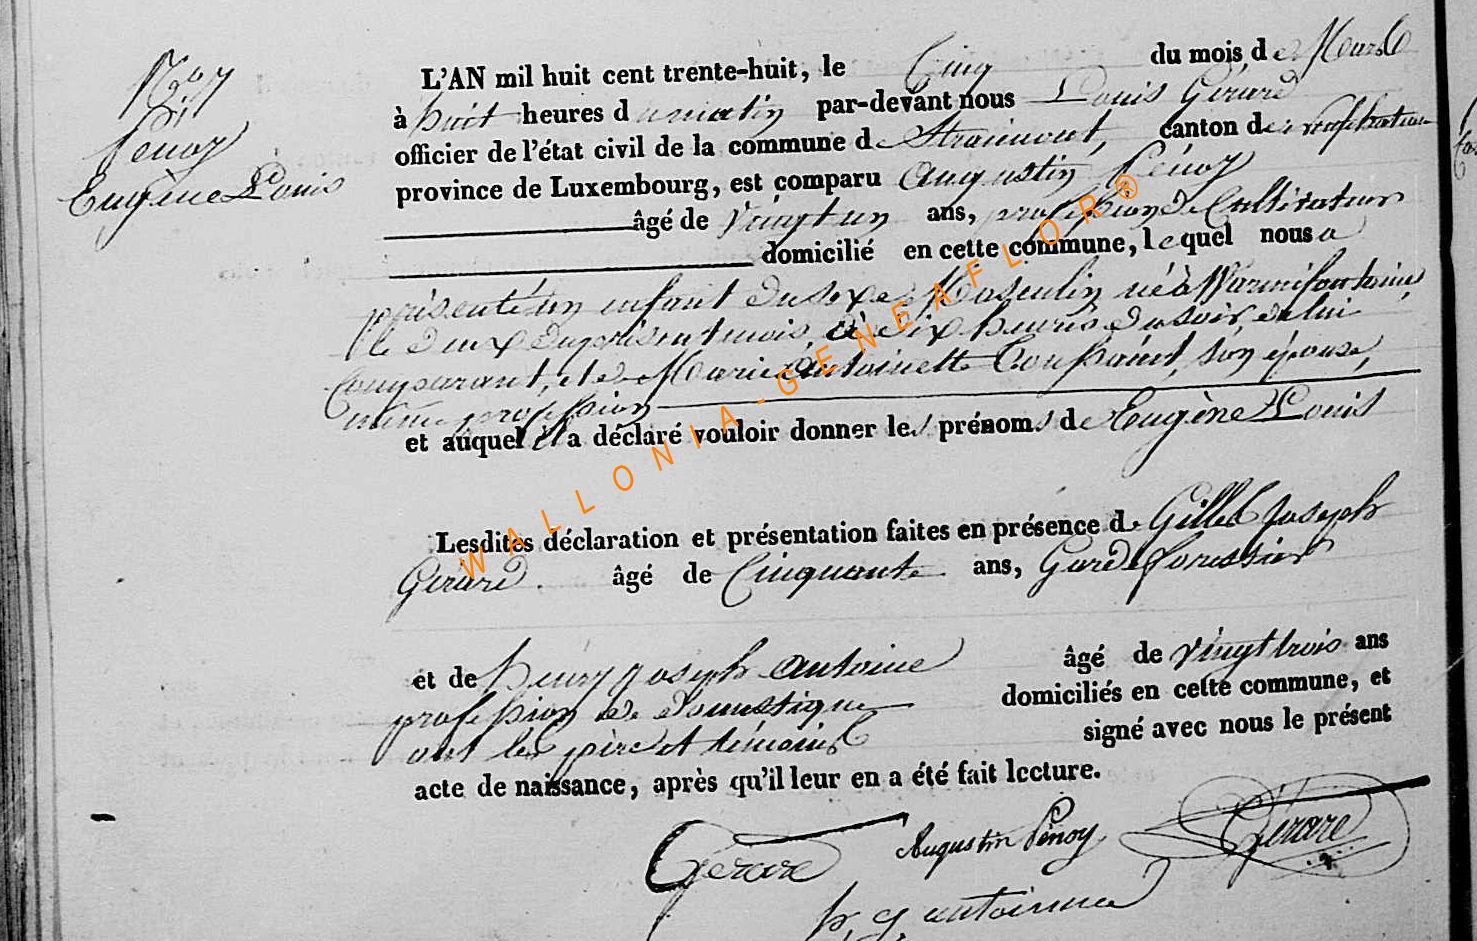 N° 7
Pénoy
Eugène Louis
L'AN mil huit cent trente-huit, le Cinq du mois de Mars
à huit heures du matin par-devant nous Louis Gérard
officier de l'état civil de la commune de Straimont, canton de neufchateau
province de Luxembourg, est comparu Augustin Pénoy
âgé de vingt un ans, profession de Cultivateur
domicilié en cette commune, lequel nous a
présenté un enfant du sexe Masculin né à Warmifontaine,
le deux du présent mois, à dix heures du soir, de lui
Comparant, et de Marie Antoinette son épouse,
même profession
et auquel il a déclaré vouloir donner les prénoms de Eugène Louis
Lesdites déclaration et présentation faites en présence de Gilles Joseph
Gérard. âgé de Cinquante ans, Garde forestier
et de henry joseph antoine âgé de vingt trois ans
profession de domestique domiciliés en cette commune, et
ont les père et témoins signé avec nous le présent
acte de naissance, après qu'il leur en a été fait lecture.
Gérard Augustin Pénoy Gérard
h. j. antoine
WALLONIA-GENEAFLOR®